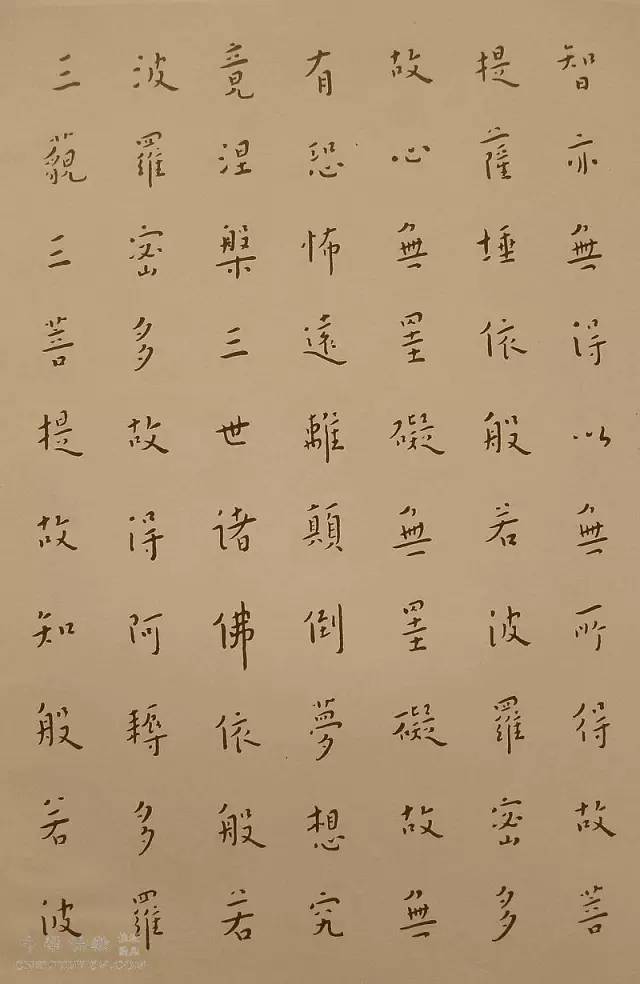 智亦無得以無所得故菩
提薩埵依般若波羅蜜多
故心無罣礙無罣礙故無
有恐怖遠離顛倒夢想究
竟涅槃三世諸佛依般若
波羅蜜多故得阿耨多羅
三藐三菩提故知般若波